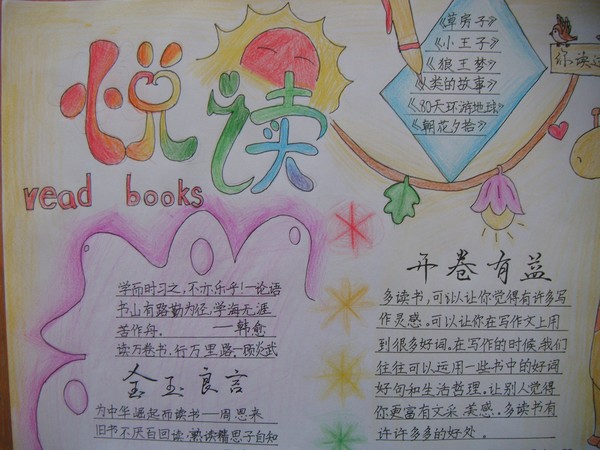 悦读
read books
《草房子》
《小王子》
《狼王梦》
《人类的故事》
《80天环游地球》
《朝花夕拾》
你读过
学而时习之,不亦乐乎!—论语
书山有路勤为径,学海无涯
苦作舟。 ——韩愈
读万卷书,行万里路—顾炎武
金玉良言
为中华崛起而读书——周恩来
旧书不厌百回读,熟读精思子自知
开卷有益
多读书,可以让你觉得有许多写
作灵感。可以让你在写作文上用
到很多好词。在写作的时候,我们
往往可以运用一些书中的好词
好句和生活哲理。让别人觉得
你更富有文采、美感。多读书有
许许多多的好处。